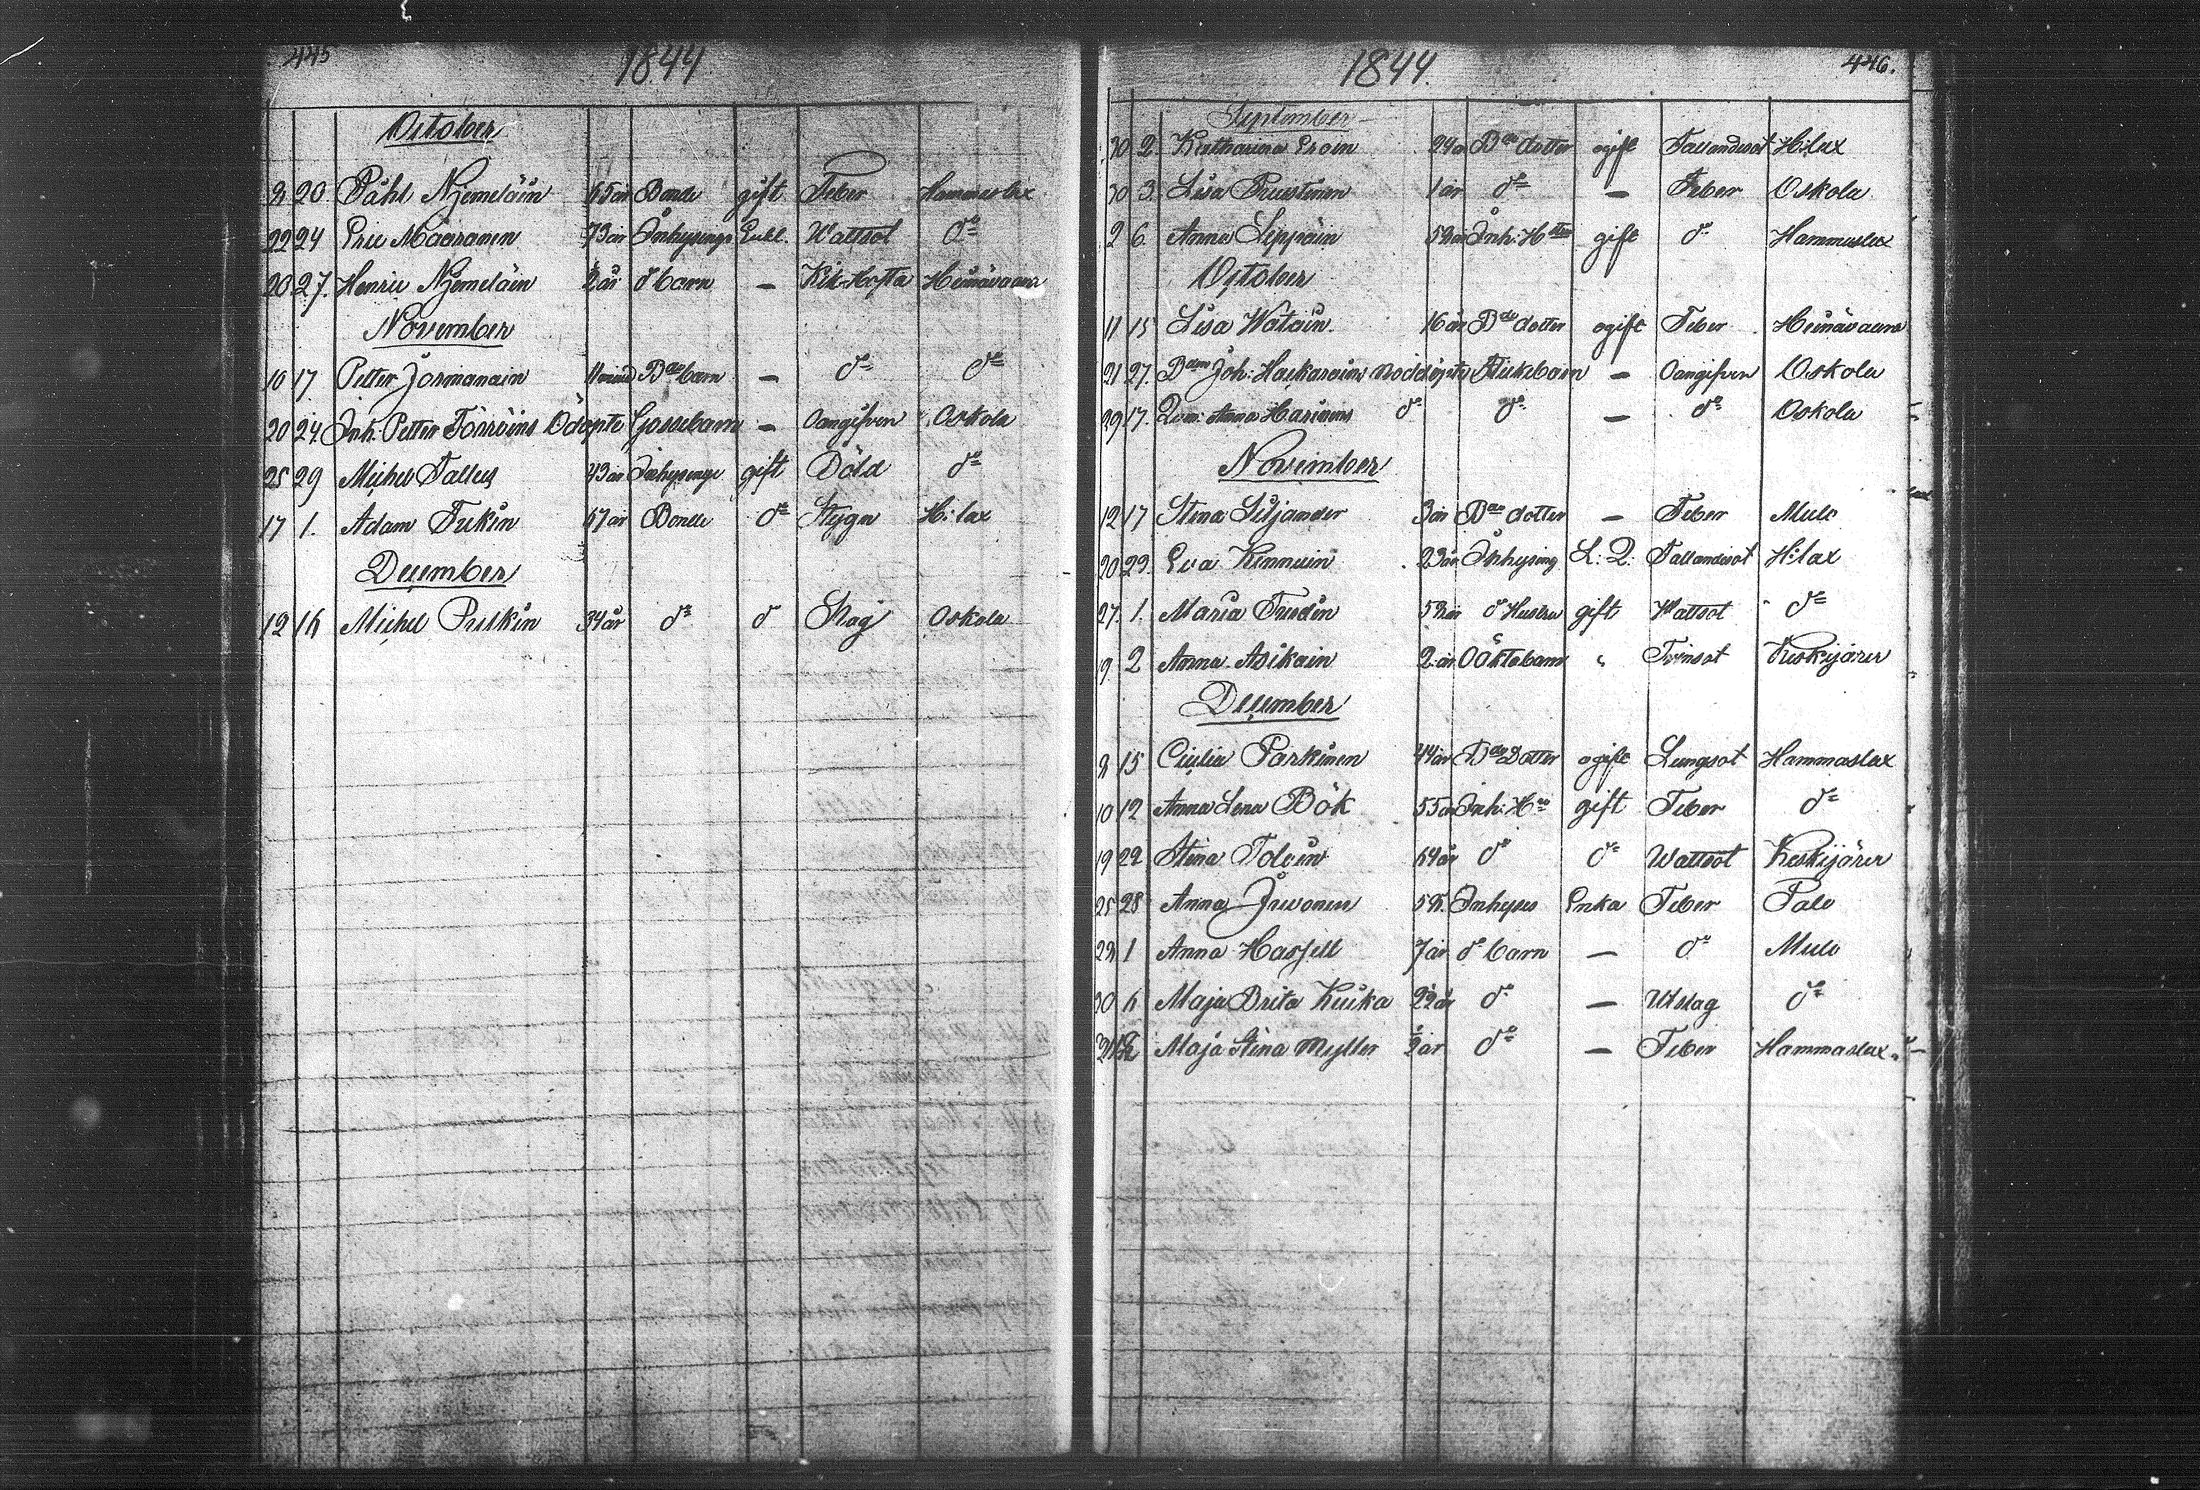 445
1844
October
20. Påhl Njemeläin 65 år Bonde gift Feber Hammaslax
22 24 Eric Määränen 73 år Inhysings Enkl. Wattsot do
20 27. Henric Njemeläin 2 år do barn — Kik-Hosta Heinävaara
November
10 17. Petter Jormanain 11 Bde barn — do do
20 24. Inh: Petter Törröins Odöpte Gossebarn — Oangifven Oskola
25 29 Michel Tallus 43 år Inhysings gift Död do
17 1. Adam Turkin 67 år Bonde do Stygn H:lax
December
12 16 Michel Puskin 34 år do do Slag Oskola
1844.
446.
September
30 2. Katharina Eroin 24 år Bde dotter ogift Fallandesot H:lax
30 3. Lisa Puustinen 1 år do — Feber Oskola
2 6. Anna Leppäin Inh: Hustru gift do Hammaslax
October
11 15 Lisa Watain 16 år Bde dotter ogift Feber Heinävaara
21 27. Bdm Joh: Haskarains nöddöpte flickebarn — Oangifven Oskola
29 17. Qvin: Anna Harinens do do — do Oskola
November
12 17 Stina Siljander 3 år Bde dotter — Feber Mulo
20 29. Eva Kinnuin 23 år Inhysing L: Q: Fallandesot H:lax
27. 1. Maria Turdin do Hustru gift Wattsot do
9. 2 Anna Asikain 2 år Oäktabarn " Tvinsot Keskijärvi
December
15 Cicilia Parkinen 44 år Bde Dotter ogift Lungsot Hammaslax
10 12 Anna Lena Bök 55 år Inh: Hu gift Feber do
19 22 Stina Tolvin 64 år do do Wattsot Keskijärvi
25 28 Anna Juvonen Inhyses Enka Feber Palo
1 Anna Hasfelt 7 år do barn — do Mulo
30 6 Maja Brita Kuika 2½ år do — Utslag do
Maja Stina Myller ½ år do — Feber Hammaslax